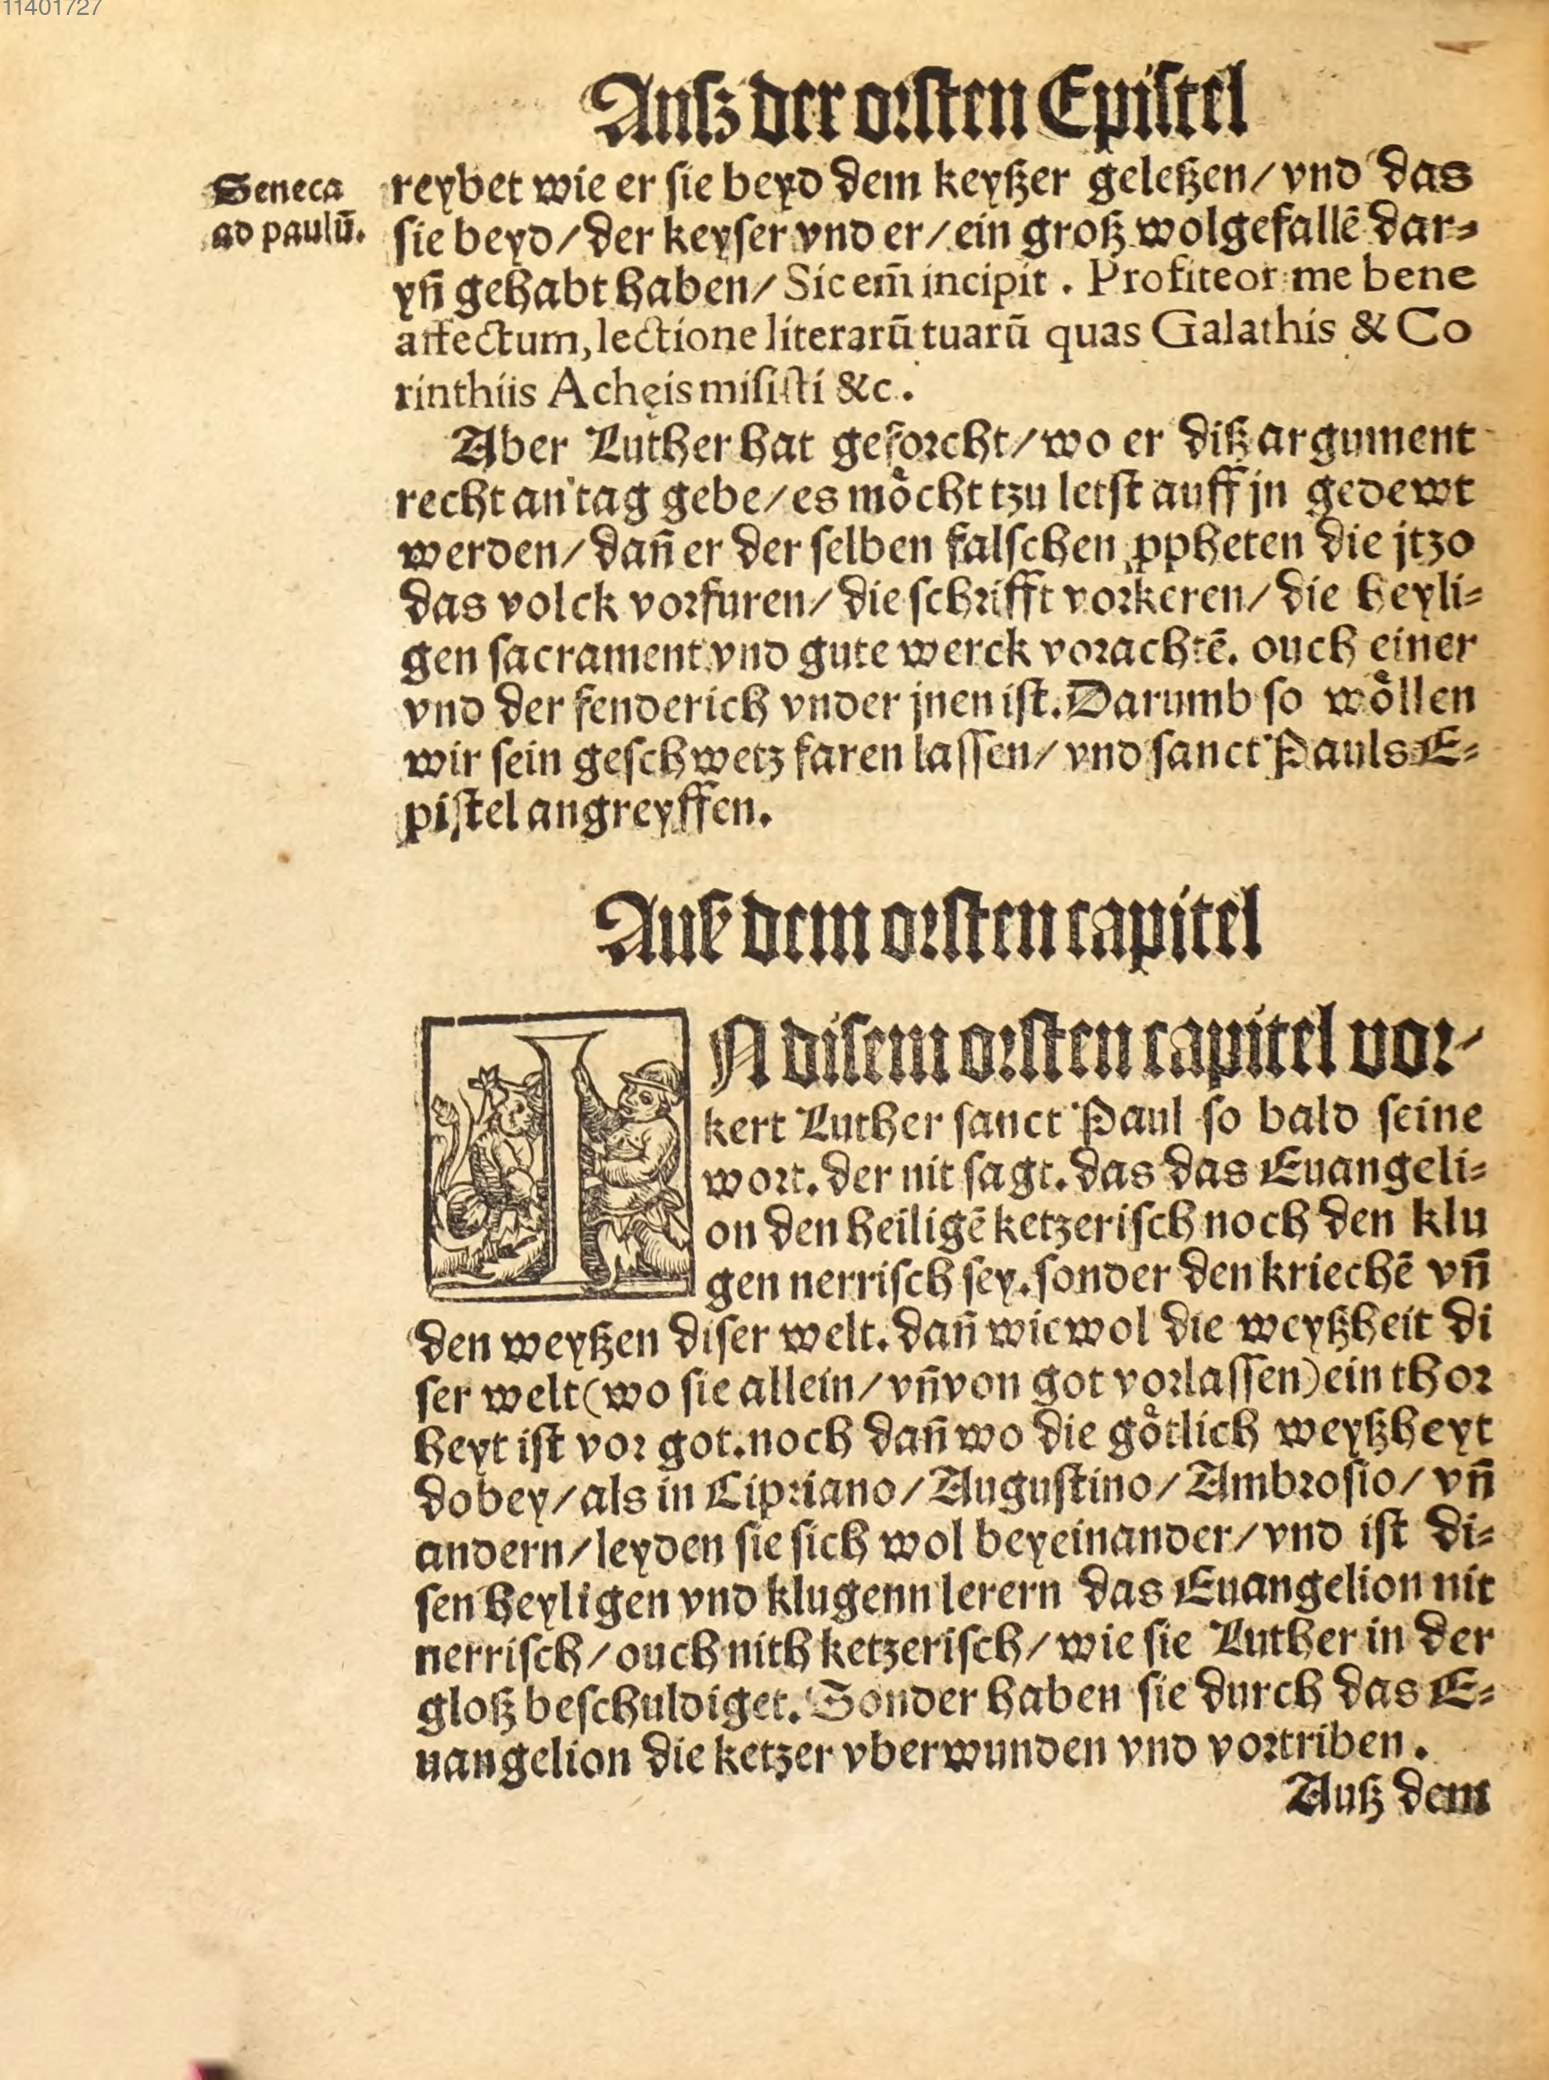 11401727
Ausz der orsten Epistel
Seneca
ad paulū.
reybet wie er sie beyd dem keyßer geleßen/vnd das
sie beyd/der keyser vnd er/ein groß wolgefallē dar⸗
yn̄ gehabt haben/Sic em̄ incipit. Profiteor me bene
affectum, lectione literarū tuarū quas Galathis & Co
rinthiis Achęis misisti &c.
Aber Luther hat geforcht/wo er diß argument
recht an tag gebe/es moͤcht tzu letst auff jn gedewt
werden/dan̄ er der selben falschen ꝓpheten die jtzo
das volck vorfuren/die schrifft vorkeren/die heyli⸗
gen sacrament vnd gute werck vorachtē. ouch einer
vnd der fenderich vnder jnen ist. Darumb so woͤllen
wir sein geschwetz faren lassen/vnd sanct Pauls E⸗
pistel angreyffen.
Auß dem orsten capitel
IN disem orsten capitel vor⸗
kert Luther sanct Paul so bald seine
wort. der nit sagt. das das Euangeli⸗
on den heiligē ketzerisch noch den klu
gen nerrisch sey. sonder den kriechē vn̄
den weyßen diser welt. dan̄ wiewol die weyßheit di
ser welt (wo sie allein/vn̄ von got vorlassen) ein thor
heyt ist vor got. noch dan̄ wo die goͤtlich weyßheyt
dobey/als in Cipriano/Augustino/Ambrosio/vn̄
andern/leyden sie sich wol beyeinander/vnd ist di⸗
sen heyligen vnd klugenn lerern das Euangelion nit
nerrisch/ouch nith ketzerisch/wie sie Luther in der
gloß beschuldiget. Sonder haben sie durch das E⸗
uangelion die ketzer vberwunden vnd vortriben.
Auß dem